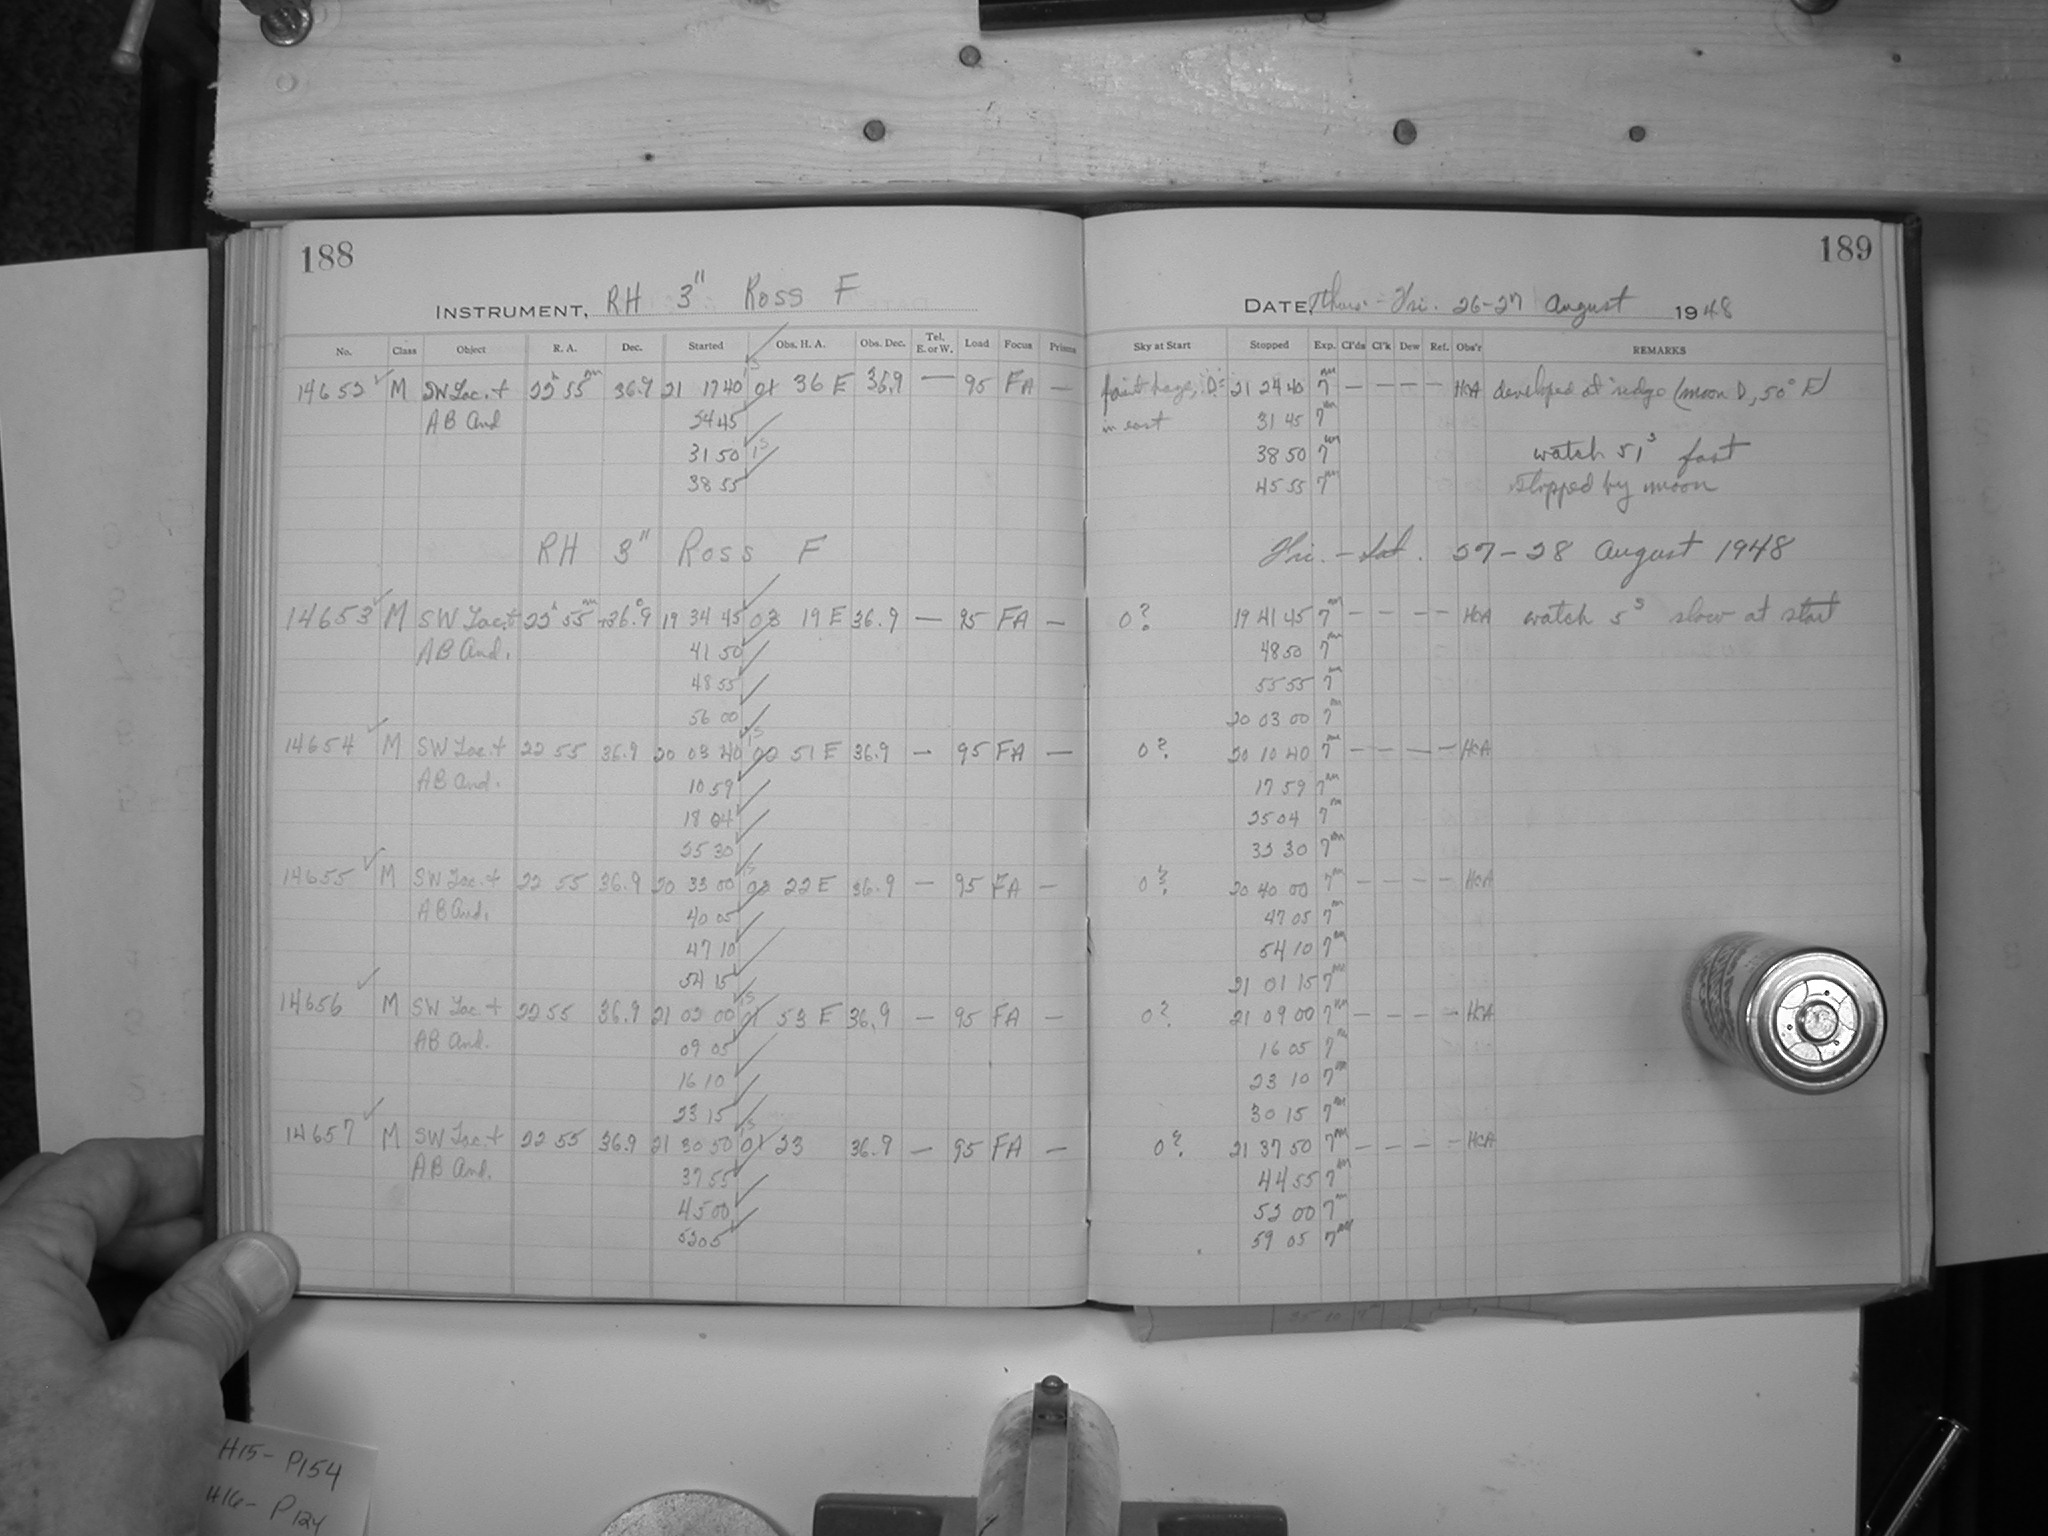 188
INSTRUMENT, RH 3" Ross F
No. Class Object R. A. Dec. Started Obs. H. A. Obs. Dec. Tel. E. or W. Load Focus Prisms
14652 M SW Lac. + 22h 55m 36.9 21 17 40 01 36 E 36.9 — 95 FA —
AB And 24 45
31 50
38 55
RH 3" Ross F
14653 M SW Lac. + 22h 55m +36°9 19 34 45 03 19 E 36.9 — 95 FA —
AB And. 41 50
48 55
56 00
14654 M SW Lac. + 22 55 36.9 20 03 40 02 51 E 36.9 — 95 FA —
AB And. 10 59
18 04
25 30
14655 M SW Lac. + 22 55 36.9 20 33 00 22 E 36.9 — 95 FA —
AB And. 40 05
47 10
54 15
14656 M SW Lac. + 22 55 36.9 21 02 00 01 53 E 36.9 — 95 FA —
AB And. 09 05
16 10
23 15
14657 M SW Lac. + 22 55 36.9 21 30 50 01 23 36.9 — 95 FA —
AB And. 37 55
45 00
52 05
189
DATE, Thurs. - Fri. 26-27 August 1948
Sky at Start Stopped Exp. Cl'ds Cl'k Dew Ref. Obs'r REMARKS
faint haze, 21 24 40 7m — — — — HCA developed at ridge (moon D, 50° E)
in east 31 45 7m
38 50 7m watch 51s fast
45 55 7m stopped by moon
Fri. - Sat. 27-28 August 1948
0? 19 41 45 7m — — — — HCA watch 5s slow at start
48 50 7m
55 55 7m
20 03 00 7m
0? 20 10 40 7m — — — — HCA
17 59 7m
25 04 7m
32 30 7m
0? 20 40 00 7m — — — — HCA
47 05 7m
54 10 7m
21 01 15 7m
0? 21 09 00 7m — — — — HCA
16 05 7m
23 10 7m
30 15 7m
0? 21 37 50 7m — — — — HCA
44 55 7m
52 00 7m
59 05 7m
H15- P154
H16- P124